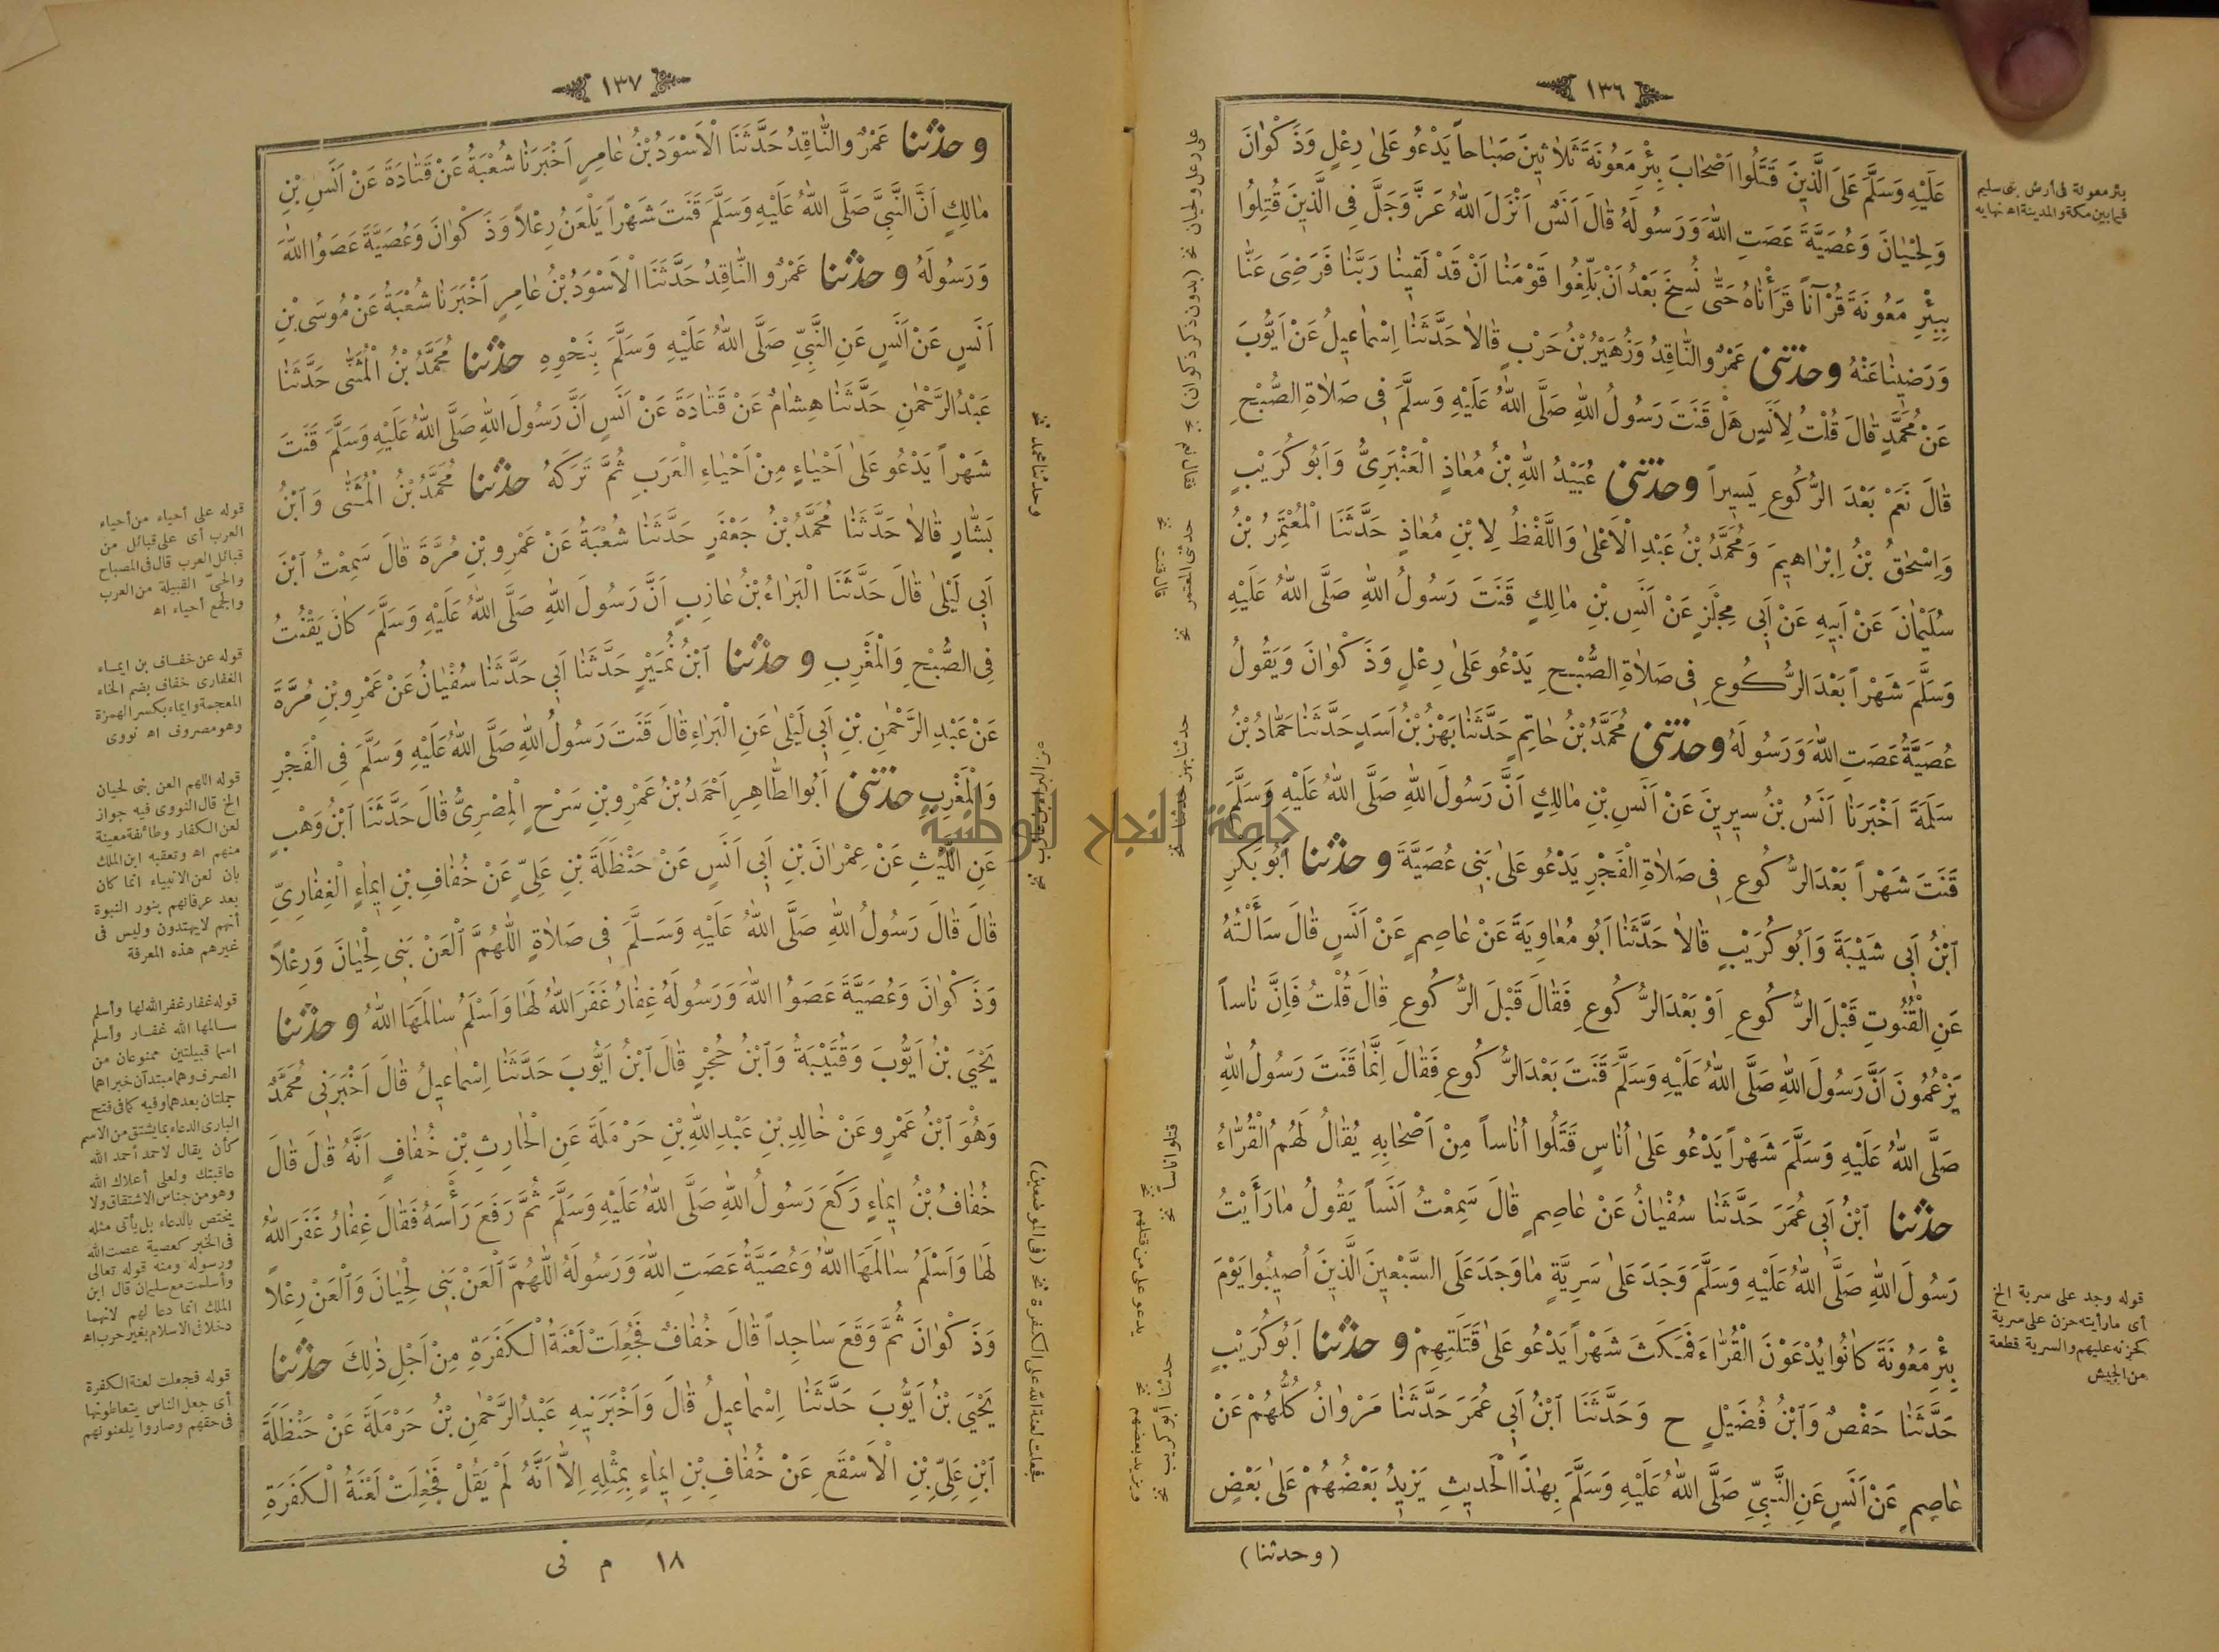 ١٣٦
عَلَيْهِ وَسَلَّمَ عَلَى الَّذِينَ قَتَلُوا اَصْحَابَ بِئْرِ مَعُونَةَ ثَلَاثِينَ صَبَاحاً يَدْعُو عَلَى رِعْلٍ وَذَكْوَانَ
وَلِحْيَانَ وَعُصَيَّةَ عَصَتِ اللهَ وَرَسُولَهُ قَالَ اَنَسٌ اَنْزَلَ اللهُ عَزَّ وَجَلَّ فِى الَّذِينَ قُتِلُوا
بِبِئْرِ مَعُونَةَ قُرْآناً قَرَأْنَاهُ حَتَّى نُسِخَ بَعْدُ اَنْ بَلِّغُوا قَوْمَنَا اَنْ قَدْ لَقِينَا رَبَّنَا فَرَضِىَ عَنَّا
وَرَضِينَا عَنْهُ وحدثنى عَمْرٌو النَّاقِدُ وَزُهَيْرُ بْنُ حَرْبٍ قَالَا حَدَّثَنَا اِسْمَاعِيلُ عَنْ اَيُّوبَ
عَنْ مُحَمَّدٍ قَالَ قُلْتُ لِاَنَسٍ هَلْ قَنَتَ رَسُولُ اللهِ صَلَّى اللهُ عَلَيْهِ وَسَلَّمَ فِى صَلَاةِ الصُّبْحِ
قَالَ نَعَمْ بَعْدَ الرُّكُوعِ يَسِيراً وحدثنى عُبَيْدُ اللهِ بْنُ مُعَاذٍ الْعَنْبَرِىُّ وَاَبُو كُرَيْبٍ
وَاِسْحٰقُ بْنُ اِبْرَاهِيمَ وَمُحَمَّدُ بْنُ عَبْدِ الْاَعْلَى وَاللَّفْظُ لِابْنِ مُعَاذٍ حَدَّثَنَا الْمُعْتَمِرُ بْنُ
سُلَيْمَانَ عَنْ اَبِيهِ عَنْ اَبِى مِجْلَزٍ عَنْ اَنَسِ بْنِ مَالِكٍ قَنَتَ رَسُولُ اللهِ صَلَّى اللهُ عَلَيْهِ
وَسَلَّمَ شَهْراً بَعْدَ الرُّكُوعِ فِى صَلَاةِ الصُّبْحِ يَدْعُو عَلَى رِعْلٍ وَذَكْوَانَ وَيَقُولُ
عُصَيَّةُ عَصَتِ اللهَ وَرَسُولَهُ وحدثنى مُحَمَّدُ بْنُ حَاتِمٍ حَدَّثَنَا بَهْزُ بْنُ اَسَدٍ حَدَّثَنَا حَمَّادُ بْنُ
سَلَمَةَ اَخْبَرَنَا اَنَسُ بْنُ سِيرِينَ عَنْ اَنَسِ بْنِ مَالِكٍ اَنَّ رَسُولَ اللهِ صَلَّى اللهُ عَلَيْهِ وَسَلَّمَ
قَنَتَ شَهْراً بَعْدَ الرُّكُوعِ فِى صَلَاةِ الْفَجْرِ يَدْعُو عَلَى بَنِى عُصَيَّةَ وحدثنا اَبُو بَكْرِ
ابْنُ اَبِى شَيْبَةَ وَاَبُو كُرَيْبٍ قَالَا حَدَّثَنَا اَبُو مُعَاوِيَةَ عَنْ عَاصِمٍ عَنْ اَنَسٍ قَالَ سَأَلْتُهُ
عَنِ الْقُنُوتِ قَبْلَ الرُّكُوعِ اَوْ بَعْدَ الرُّكُوعِ فَقَالَ قَبْلَ الرُّكُوعِ قَالَ قُلْتُ فَاِنَّ نَاساً
يَزْعُمُونَ اَنَّ رَسُولَ اللهِ صَلَّى اللهُ عَلَيْهِ وَسَلَّمَ قَنَتَ بَعْدَ الرُّكُوعِ فَقَالَ اِنَّمَا قَنَتَ رَسُولُ اللهِ
صَلَّى اللهُ عَلَيْهِ وَسَلَّمَ شَهْراً يَدْعُو عَلَى اُنَاسٍ قَتَلُوا اُنَاساً مِنْ اَصْحَابِهِ يُقَالُ لَهُمُ الْقُرَّاءُ
حدثنا ابْنُ اَبِى عُمَرَ حَدَّثَنَا سُفْيَانُ عَنْ عَاصِمٍ قَالَ سَمِعْتُ اَنَساً يَقُولُ مَا رَأَيْتُ
رَسُولَ اللهِ صَلَّى اللهُ عَلَيْهِ وَسَلَّمَ وَجَدَ عَلَى سَرِيَّةٍ مَا وَجَدَ عَلَى السَّبْعِينَ الَّذِينَ اُصِيبُوا يَوْمَ
بِئْرِ مَعُونَةَ كَانُوا يُدْعَوْنَ الْقُرَّاءَ فَمَكَثَ شَهْراً يَدْعُو عَلَى قَتَلَتِهِمْ وحدثنا اَبُو كُرَيْبٍ
حَدَّثَنَا حَفْصٌ وَابْنُ فُضَيْلٍ ح وَحَدَّثَنَا ابْنُ اَبِى عُمَرَ حَدَّثَنَا مَرْوَانُ كُلُّهُمْ عَنْ
عَاصِمٍ عَنْ اَنَسٍ عَنِ النَّبِىِّ صَلَّى اللهُ عَلَيْهِ وَسَلَّمَ بِهٰذَا الْحَدِيثِ يَزِيدُ بَعْضُهُمْ عَلَى بَعْضٍ
(وحدثنا)
بئر معونة فى أرض بنى سليم
فيما بين مكة والمدينة اه نهايه
قوله وجد على سرية الخ
أى ما رأيته حزن على سرية
كحزنه عليهم والسرية قطعة
من الجيش
على رعل ولحيان (بدون ذكر ذكوان)
قال قنت
حدثنى المعتمر
حدثنا بهز حدثنا
قتلوا ناساً
يدعو على من قتلهم
حدثنا أبو كريب
ويزيد بعضهم
١٣٧
وحدثنا عَمْرٌو النَّاقِدُ حَدَّثَنَا الْاَسْوَدُ بْنُ عَامِرٍ اَخْبَرَنَا شُعْبَةُ عَنْ قَتَادَةَ عَنْ اَنَسِ بْنِ
مَالِكٍ اَنَّ النَّبِىَّ صَلَّى اللهُ عَلَيْهِ وَسَلَّمَ قَنَتَ شَهْراً يَلْعَنُ رِعْلاً وَذَكْوَانَ وَعُصَيَّةَ عَصَوُا اللهَ
وَرَسُولَهُ وحدثنا عَمْرٌو النَّاقِدُ حَدَّثَنَا الْاَسْوَدُ بْنُ عَامِرٍ اَخْبَرَنَا شُعْبَةُ عَنْ مُوسَى بْنِ
اَنَسٍ عَنْ اَنَسٍ عَنِ النَّبِىِّ صَلَّى اللهُ عَلَيْهِ وَسَلَّمَ بِنَحْوِهِ حدثنا مُحَمَّدُ بْنُ الْمُثَنَّى حَدَّثَنَا
عَبْدُ الرَّحْمٰنِ حَدَّثَنَا هِشَامٌ عَنْ قَتَادَةَ عَنْ اَنَسٍ اَنَّ رَسُولَ اللهِ صَلَّى اللهُ عَلَيْهِ وَسَلَّمَ قَنَتَ
شَهْراً يَدْعُو عَلَى اَحْيَاءٍ مِنْ اَحْيَاءِ الْعَرَبِ ثُمَّ تَرَكَهُ حدثنا مُحَمَّدُ بْنُ الْمُثَنَّى وَابْنُ
بَشَّارٍ قَالَا حَدَّثَنَا مُحَمَّدُ بْنُ جَعْفَرٍ حَدَّثَنَا شُعْبَةُ عَنْ عَمْرِو بْنِ مُرَّةَ قَالَ سَمِعْتُ ابْنَ
اَبِى لَيْلَى قَالَ حَدَّثَنَا الْبَرَاءُ بْنُ عَازِبٍ اَنَّ رَسُولَ اللهِ صَلَّى اللهُ عَلَيْهِ وَسَلَّمَ كَانَ يَقْنُتُ
فِى الصُّبْحِ وَالْمَغْرِبِ وحدثنا ابْنُ نُمَيْرٍ حَدَّثَنَا اَبِى حَدَّثَنَا سُفْيَانُ عَنْ عَمْرِو بْنِ مُرَّةَ
عَنْ عَبْدِ الرَّحْمٰنِ بْنِ اَبِى لَيْلَى عَنِ الْبَرَاءِ قَالَ قَنَتَ رَسُولُ اللهِ صَلَّى اللهُ عَلَيْهِ وَسَلَّمَ فِى الْفَجْرِ
وَالْمَغْرِبِ حدثنى اَبُو الطَّاهِرِ اَحْمَدُ بْنُ عَمْرِو بْنِ سَرْحٍ الْمِصْرِىُّ قَالَ حَدَّثَنَا ابْنُ وَهْبٍ
عَنِ اللَّيْثِ عَنْ عِمْرَانَ بْنِ اَبِى اَنَسٍ عَنْ حَنْظَلَةَ بْنِ عَلِىٍّ عَنْ خُفَافِ بْنِ اِيمَاءٍ الْغِفَارِىِّ
قَالَ قَالَ رَسُولُ اللهِ صَلَّى اللهُ عَلَيْهِ وَسَلَّمَ فِى صَلَاةٍ اللّٰهُمَّ الْعَنْ بَنِى لِحْيَانَ وَرِعْلاً
وَذَكْوَانَ وَعُصَيَّةَ عَصَوُا اللهَ وَرَسُولَهُ غِفَارُ غَفَرَ اللهُ لَهَا وَاَسْلَمُ سَالَمَهَا اللهُ وحدثنا
يَحْيَى بْنُ اَيُّوبَ وَقُتَيْبَةُ وَابْنُ حُجْرٍ قَالَ ابْنُ اَيُّوبَ حَدَّثَنَا اِسْمَاعِيلُ قَالَ اَخْبَرَنِى مُحَمَّدٌ
وَهُوَ ابْنُ عَمْرٍو عَنْ خَالِدِ بْنِ عَبْدِ اللهِ بْنِ حَرْمَلَةَ عَنِ الْحَارِثِ بْنِ خُفَافٍ اَنَّهُ قَالَ قَالَ
خُفَافُ بْنُ اِيمَاءٍ رَكَعَ رَسُولُ اللهِ صَلَّى اللهُ عَلَيْهِ وَسَلَّمَ ثُمَّ رَفَعَ رَأْسَهُ فَقَالَ غِفَارُ غَفَرَ اللهُ
لَهَا وَاَسْلَمُ سَالَمَهَا اللهُ وَعُصَيَّةُ عَصَتِ اللهَ وَرَسُولَهُ اللّٰهُمَّ الْعَنْ بَنِى لِحْيَانَ وَالْعَنْ رِعْلاً
وَذَكْوَانَ ثُمَّ وَقَعَ سَاجِداً قَالَ خُفَافٌ فَجُعِلَتْ لَعْنَةُ الْكَفَرَةِ مِنْ اَجْلِ ذٰلِكَ حدثنا
يَحْيَى بْنُ اَيُّوبَ حَدَّثَنَا اِسْمَاعِيلُ قَالَ وَاَخْبَرَنِيهِ عَبْدُ الرَّحْمٰنِ بْنُ حَرْمَلَةَ عَنْ حَنْظَلَةَ
ابْنِ عَلِىِّ بْنِ الْاَسْقَعِ عَنْ خُفَافِ بْنِ اِيمَاءٍ بِمِثْلِهِ اِلَّا اَنَّهُ لَمْ يَقُلْ فَجُعِلَتْ لَعْنَةُ الْكَفَرَةِ
١٨ م نى
وحدثنا محمد
(فى الموضعين)
فجعلت لعنة الله على الكفرة
قوله على أحياء من أحياء
العرب أى على قبائل من
قبائل العرب قال فى المصباح
والحىّ القبيلة من العرب
والجمع أحياء اه
قوله عن خفاف بن ايماء
الغفارى خفاف بضم الخاء
المعجمة وايماء بكسر الهمزة
وهو مصروف اه نووى
قوله اللهم العن بنى لحيان
الخ قال النووى فيه جواز
لعن الكفار وطائفة معينة
منهم اه وتعقبه ابن الملك
بان لعن الانبياء انما كان
بعد عرفانهم بنور النبوة
أنهم لا يهتدون وليس فى
غيرهم هذه المعرفة
قوله غفار غفر الله لها وأسلم
سالمها الله غفار وأسلم
اسما قبيلتين ممنوعان من
الصرف وهما مبتدآن خبراهما
جملتان بعدهما وفيه كما فى فتح
البارى الدعاء بما يشتق من الاسم
كأن يقال لاحمد أحمد الله
عاقبتك ولعلى أعلاك الله
وهو من جناس الاشتقاق ولا
يختص بالدعاء بل يأتى مثله
فى الخبر كعصية عصت الله
ورسوله ومنه قوله تعالى
وأسلمت مع سليمان قال ابن
الملك انما دعا لهم لانهما
دخلا فى الاسلام بغير حرب اه
قوله فجعلت لعنة الكفرة
أى جعل الناس يتعاطونها
فى حقهم وصاروا يلعنونهم
جامعة النجاح الوطنية